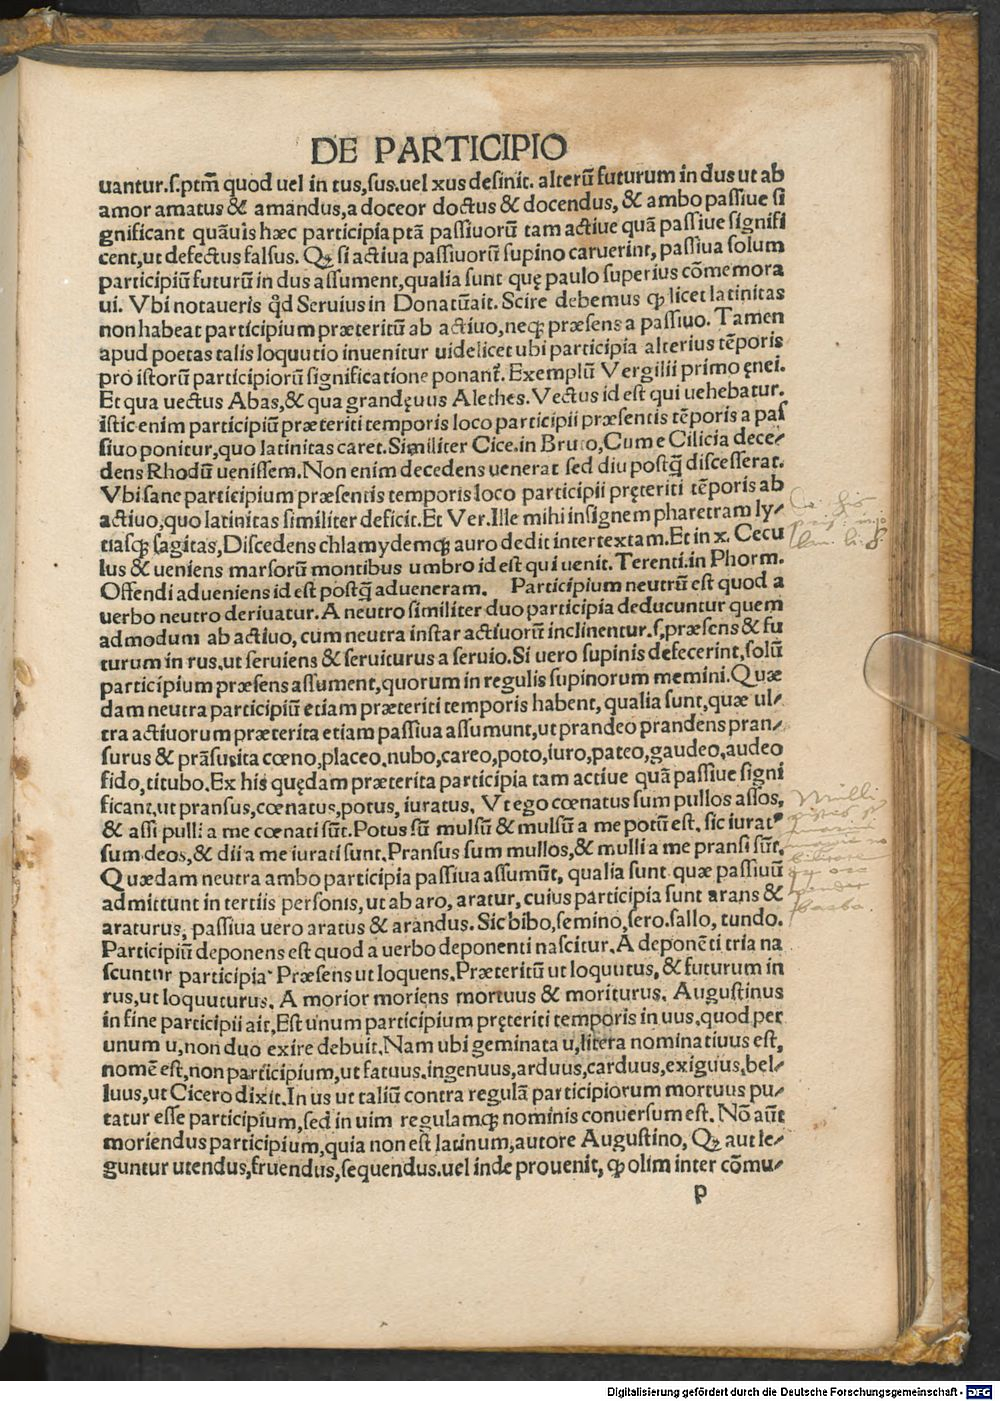 DE PARTICIPIO
uantur.ſ.ptm̃ quod uel in tus,ſus.uel xus deſinit. alterũ futurum in dus ut ab
amor amatus & amandus,a doceor doctus & docendus, & ambo paſſiue ſi
gnificant quãuis hæc participia ptã paſſiuorũ tam actiue quã paſſiue ſignifi
cent,ut defectus falſus. Qꝫ ſi actiua paſſiuorũ ſupino caruerint, paſſiua ſolum
participiũ futurũ in dus aſſument,qualia ſunt quę paulo ſuperius cõmemora
ui. Vbi notaueris qd̃ Seruius in Donatũ ait. Scire debemus ꝙ licet latinitas
non habeat participium præteritũ ab actiuo,neqꝫ præſens a paſſiuo. Tamen
apud poetas talis loquutio inuenitur uidelicet ubi participia alterius tẽporis
pro iſtorũ participiorũ ſignificatione ponant̃. Exemplũ Vergilii primo ęnei.
Et qua uectus Abas,& qua grandęuus Alethes. Vectus id eſt qui uehebatur.
iſtic enim participiũ præteriti temporis loco participii præſentis tẽporis a paſ
ſiuo ponitur,quo latinitas caret. Similiter Cice.in Bruto,Cum e Cilicia dece⸗
dens Rhodũ ueniſſem. Non enim decedens uenerat ſed diu poſtq̃ diſceſſerat.
Vbi ſane participium præſentis temporis loco participii pręteriti tẽporis ab
actiuo,quo latinitas ſimiliter deficit. Et Ver. Ille mihi inſignem pharetram ly⸗
tiasqꝫ ſagitas, Diſcedens chlamydemqꝫ auro dedit intertextam. Et in x. Cecu
lus & ueniens marſorũ montibus umbro id eſt qui uenit. Terenti.in Phorm.
Offendi adueniens id eſt poſtq̃ adueneram. Participium neutrũ eſt quod a
uerbo neutro deriuatur. A neutro ſimiliter duo participia deducuntur quem
admodum ab actiuo, cum neutra inſtar actiuorũ inclinentur.ſ.præſens & fu
turum in rus,ut ſeruiens & ſeruiturus a ſeruio. Si uero ſupinis defecerint,ſolũ
participium præſens aſſument,quorum in regulis ſupinorum memini. Quæ
dam neutra participiũ etiam præteriti temporis habent, qualia ſunt,quæ ul⸗
tra actiuorum præterita etiam paſſiua aſſumunt,ut prandeo prandens pran⸗
ſurus & prãſus ita cœno,placeo,nubo,careo,poto,iuro,pateo,gaudeo,audeo
fido,titubo. Ex his quędam præterita participia tam actiue quã paſſiue ſigni
ficant,ut pranſus,cœnatus,potus, iuratus. Vt ego cœnatus ſum pullos aſſos,
& aſſi pulli a me cœnati ſũt. Potus ſũ mulſũ & mulſũ a me potũ eſt. ſic iuratꝰ
ſum deos,& dii a me iurati ſunt. Pranſus ſum mullos,& mulli a me pranſi ſũt.
Quædam neutra ambo participia paſſiua aſſumũt, qualia ſunt quæ paſſiuũ
admittunt in tertiis perſonis,ut ab aro, aratur, cuius participia ſunt arans &
araturus, paſſiua uero aratus & arandus. Sic bibo,ſemino,ſero.fallo, tundo.
Participiũ deponens eſt quod a uerbo deponenti naſcitur. A deponẽti tria na
ſcuntur participia Præſens ut loquens. Præteritũ ut loquutus, & futurum in
rus,ut loquuturus. A morior moriens mortuus & moriturus. Auguſtinus
in fine participii ait,Eſt unum participium pręteriti temporis in uus,quod per
unum u,non duo exire debuit. Nam ubi geminata u,litera nominatiuus eſt,
nomẽ eſt,non participium,ut fatuus.ingenuus,arduus,carduus,exiguus,bel⸗
luus,ut Cicero dixit. In us ut taliũ contra regulã participiorum mortuus pu⸗
tatur eſſe participium,ſed in uim regulamqꝫ nominis conuerſum eſt. Nõ aũt
moriendus participium,quia non eſt latinum,autore Auguſtino, Qꝫ aut le⸗
guntur utendus,fruendus,ſequendus.uel inde prouenit, ꝙ olim inter cõmu⸗
p
Mulli
barba.
Digitalisierung gefördert durch die Deutsche Forschungsgemeinschaft - DFG